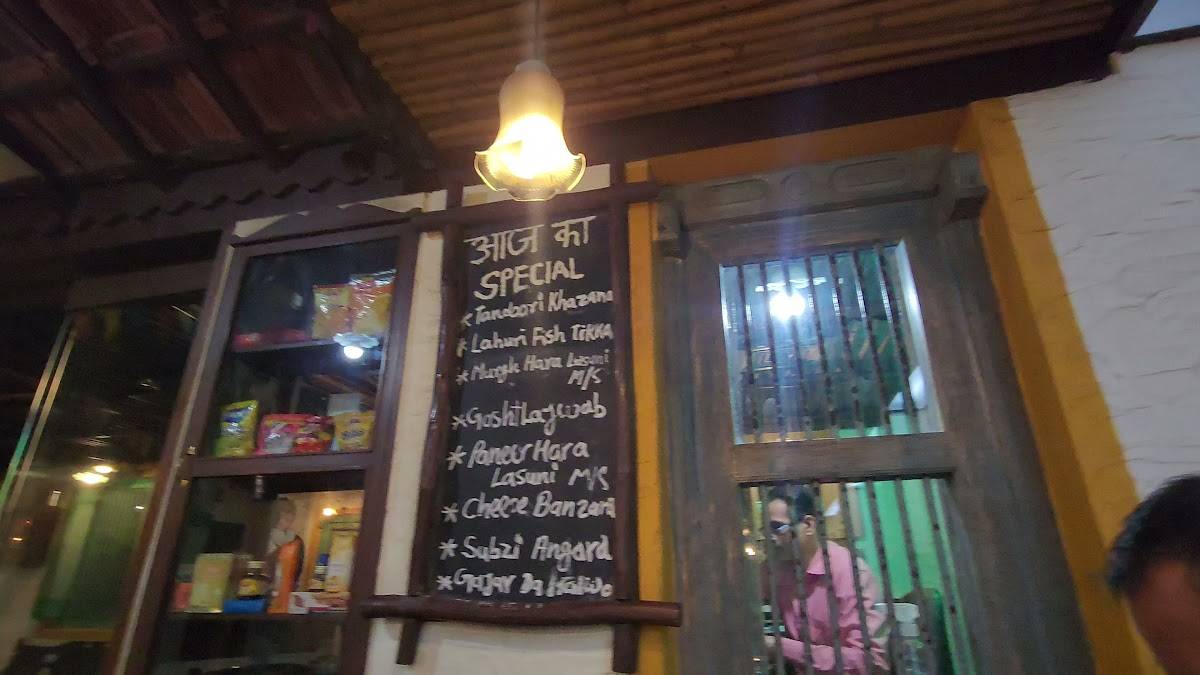 आज का
SPECIAL
* Tandoori Khazana
* Lahuri Fish TIKKA
* Murgh Hara Lasuni
M/S
* Gosht Lajwab
* Paneer Hara
Lasuni M/S
* Cheese Banzara
* Subzi Angard
* Gajar Da Halwo